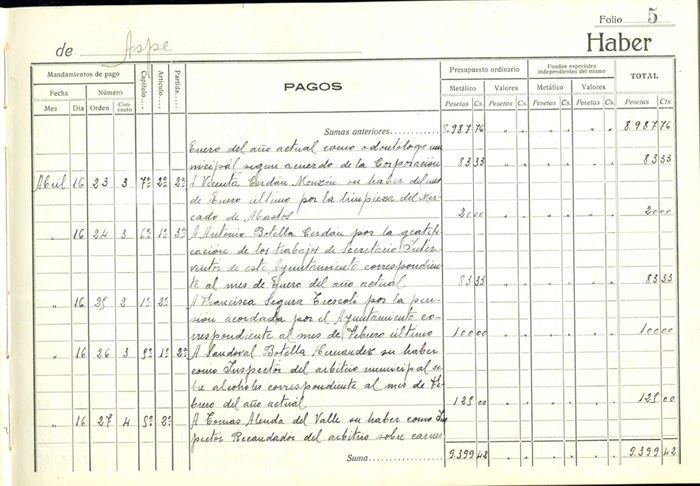 Folio 5
de Aspe
Haber
Mandamientos de pago Capítulo.... Artículo.... Partida.... PAGOS Presupuesto ordinario Fondos especiales independientes del mismo TOTAL
Fecha Número Metálico Valores Metálico Valores
Mes Día Orden Concepto Pesetas Cs. Pesetas Cs. Pesetas Cs. Pesetas Cs. Pesetas Cts
Sumas anteriores 8.987 76 8.987 76
Enero del año actual como odontólogo mu
nicipal segun acuerdo de la Corporación 83 33 83 33
Abril 16 23 3 7º 2º 2º A Vicenta Cerdán Monzón su haber del mes
de Enero último por la limpieza del Mer-
cado de Abastos 20 00 20 00
" 16 24 3 6º 1º 3º A Antonio Botella Cerdan por la gratifi-
cación de los trabajos de Secretario Inter-
ventor de este Ayuntamiento correspondien
te al mes de Enero del año actual 83 33 83 33
" 16 25 2 1º 2º A Francisca Segura por la pen-
sión acordada por el Ayuntamiento co-
rrespondiente al mes de Febrero último 100 00 100 00
" 16 26 3 5º 1º 2º A Sandoval Botella Hernandez su haber
como Inspector del arbitrio municipal so-
bre alcoholes correspondiente al mes de Fe
brero del año actual 125 00 125 00
" 16 27 4 5º 2º A Tomas Alenda del Valle su haber como Ins
pector Recaudador del arbitrio sobre carnes
Suma 9.399 42 9.399 42